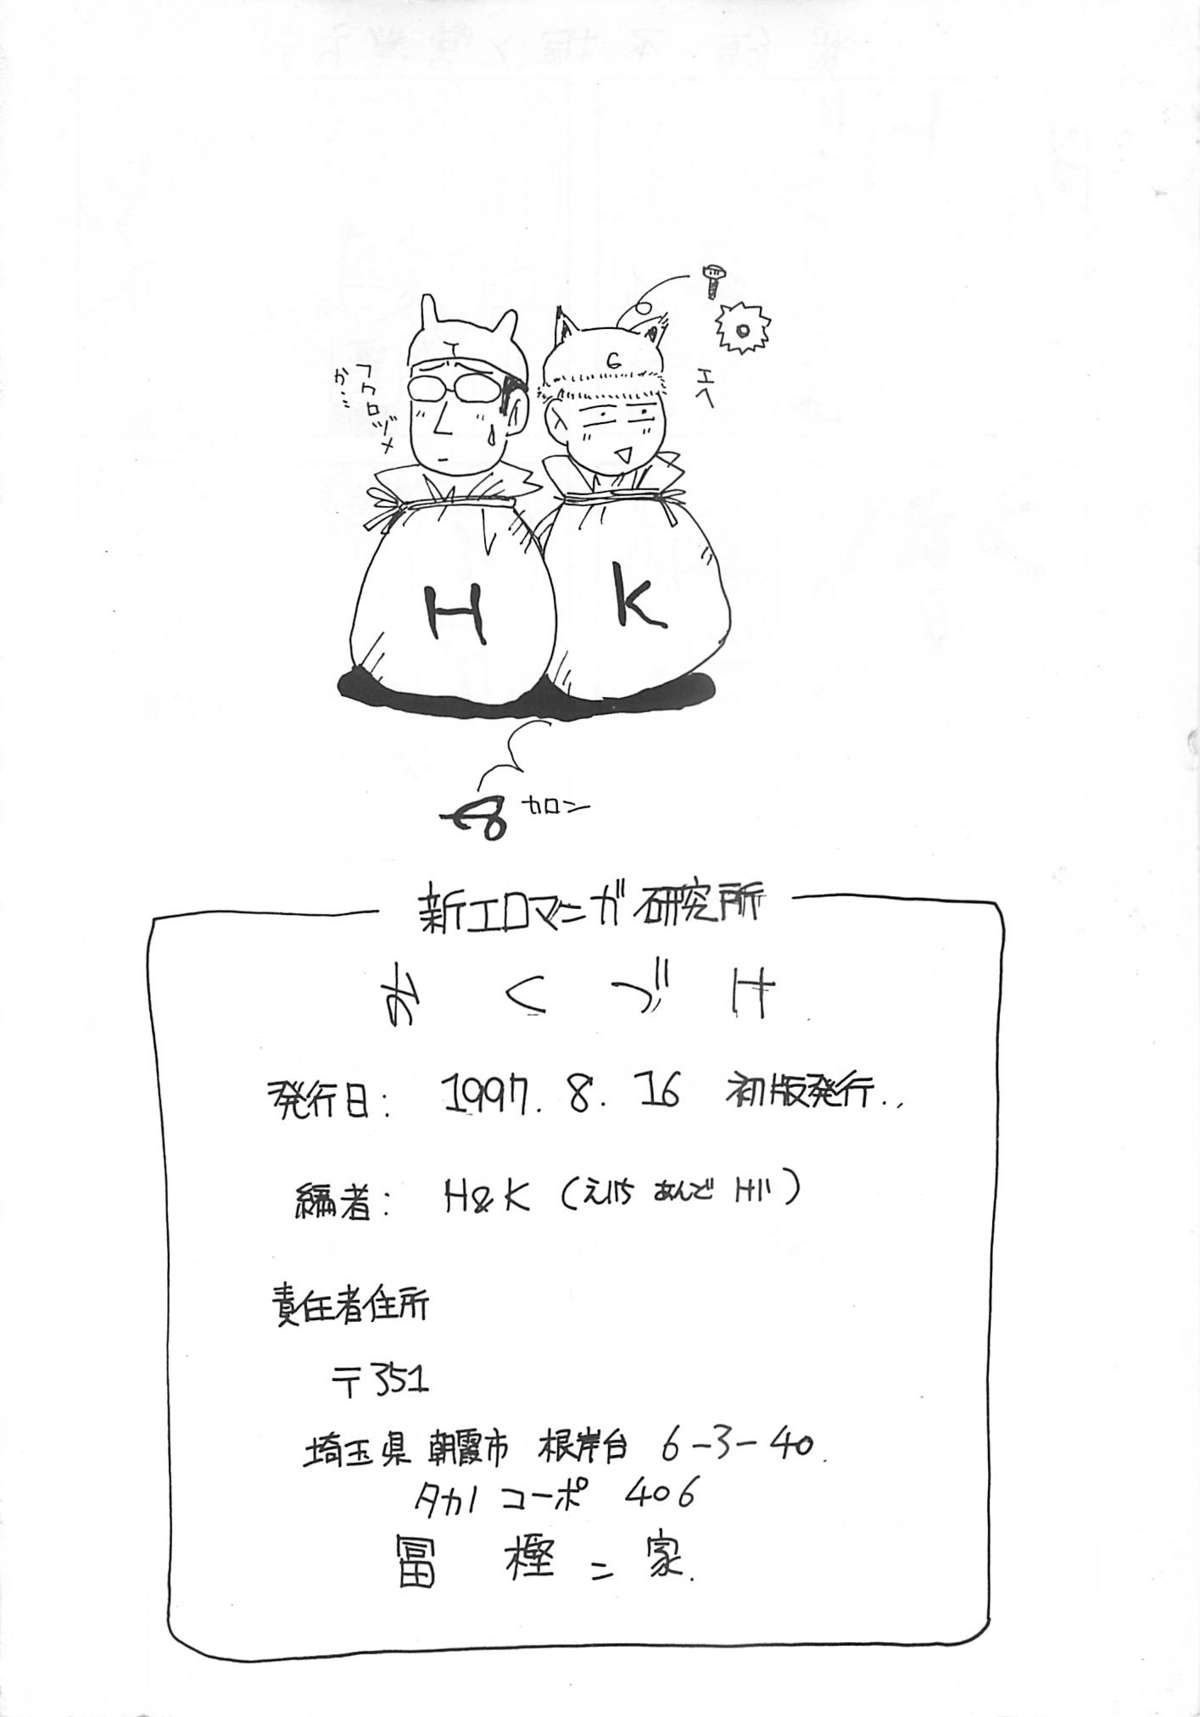 T
G
エヘ
フクロヅメ
か…
H
K
カロン
新エロマンガ研究所
おくづけ
発行日: 1997. 8. 16 初版発行..
編者: H&K (えいち あんど けい)
責任者住所
〒351
埼玉県 朝霞市 根岸台 6-3-40.
タカノ コーポ 406
冨樫ン家.